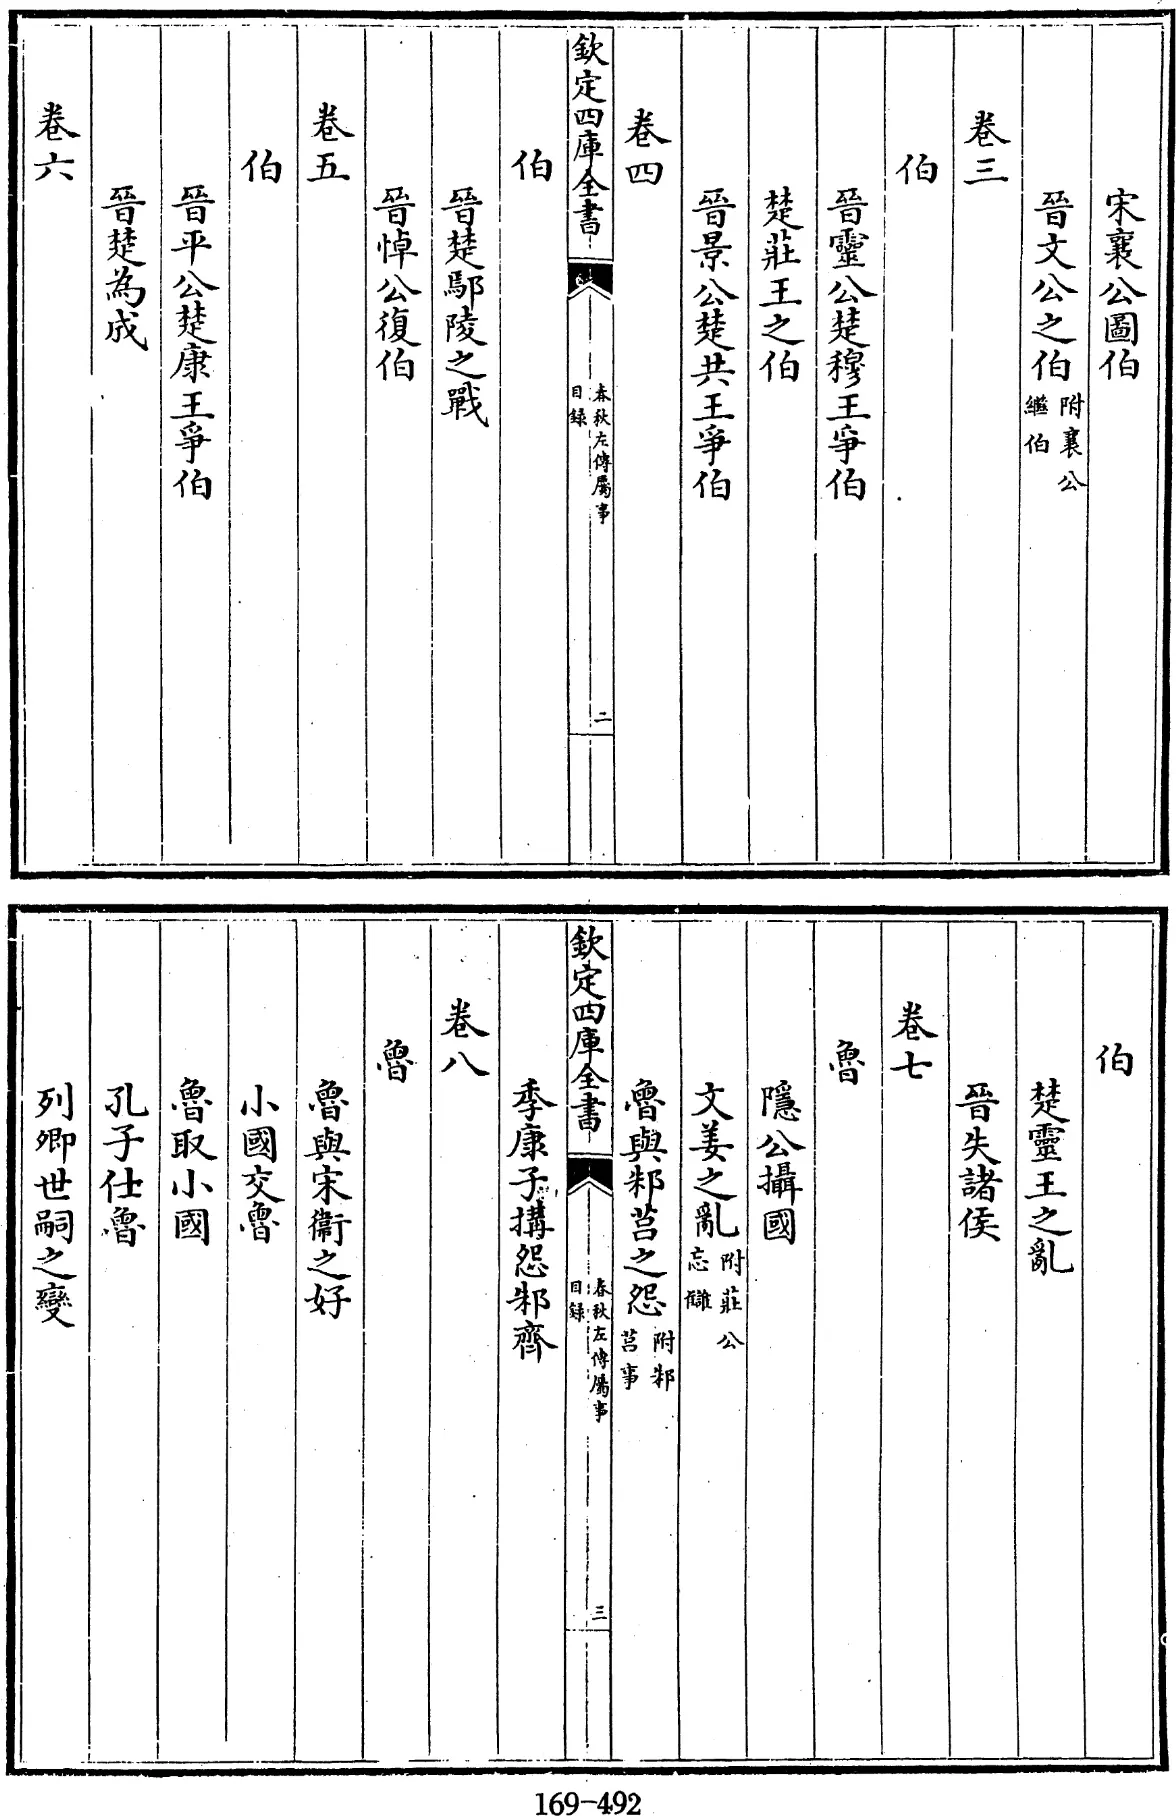 宋襄公圖伯
晉文公之伯附襄公繼伯
卷三
伯
晉靈公楚穆王爭伯
楚莊王之伯
晉景公楚共王爭伯
卷四
欽定四庫全書
春秋左傳屬事
目録
二
伯
晉楚鄢陵之戰
晉悼公復伯
卷五
伯
晉平公楚康王爭伯
晉楚為成
卷六
伯
楚靈王之亂
晉失諸侯
卷七
魯
隱公攝國
文姜之亂附莊公忘讎
魯與邾莒之怨附邾莒事
欽定四庫全書
春秋左傳屬事
目録
三
季康子搆怨邾齊
卷八
魯
魯與宋衞之好
小國交魯
魯取小國
孔子仕魯
列卿世嗣之變
169-492